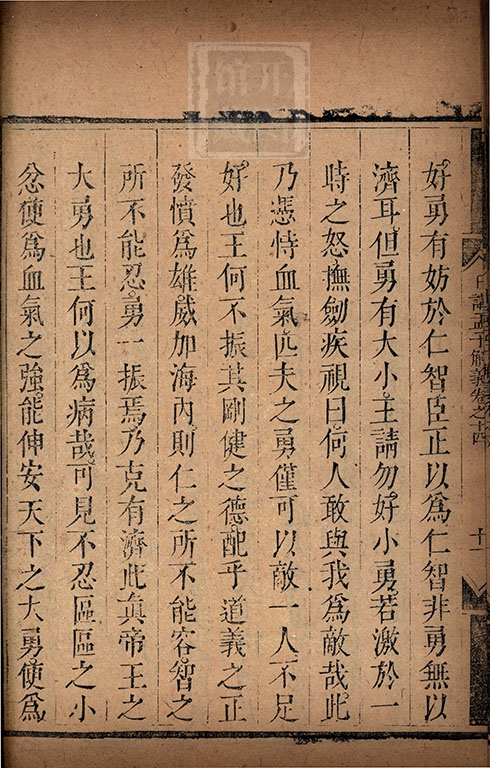 好勇有妨於仁智臣正以爲仁智非勇無以
濟耳但勇有大小王請勿好小勇若激於一
時之怒撫劍疾視曰何人敢與我爲敵哉此
乃憑恃血氣匹夫之勇僅可以敵一人不足
好也王何不振其剛健之德配乎道義之正
發憤爲雄威加海內則仁之所不能容智之
所不能忍勇一振焉乃克有濟此眞帝王之
大勇也王何以爲病哉可見不忍區區之小
忿便爲血氣之強能伸安天下之大勇便爲
日講孟子解義卷之十四
十一